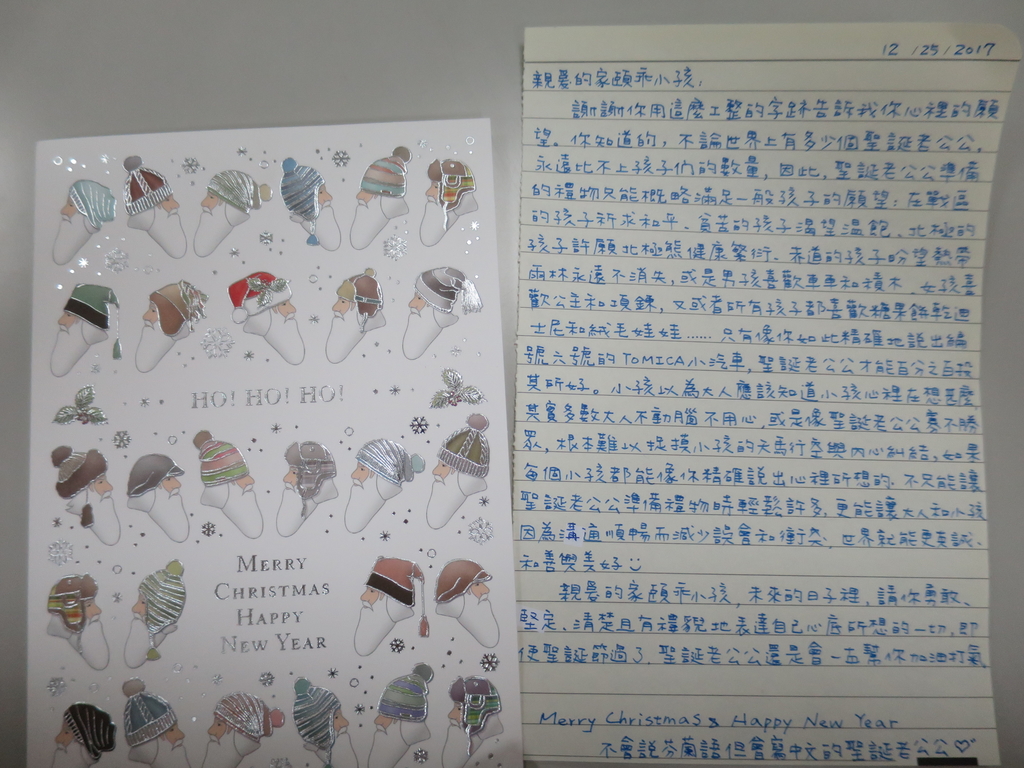 HO! HO! HO!
MERRY
CHRISTMAS
HAPPY
NEW YEAR
12 / 25 / 2017
親愛的家頤乖小孩,
謝謝你用這麼工整的字跡告訴我你心裡的願
望。你知道的,不論世界上有多少個聖誕老公公,
永遠比不上孩子們的數量,因此,聖誕老公公準備
的禮物只能概略滿足一般孩子的願望:在戰區
的孩子祈求和平、貧苦的孩子渴望溫飽、北極的
孩子許願北極熊健康繁衍、赤道的孩子盼望熱帶
雨林永遠不消失,或是男孩喜歡車車和積木、女孩喜
歡公主和項鍊,又或者所有孩子都喜歡糖果餅乾迪
士尼和絨毛娃娃……只有像你如此精確地說出編
號六號的TOMICA小汽車,聖誕老公公才能百分之百投
其所好。小孩以為大人應該知道小孩心裡在想甚麼,
其實多數大人不動腦不用心,或是像聖誕老公公寡不勝
眾,根本難以捉摸小孩的天馬行空與內心糾結,如果
每個小孩都能像你精確說出心裡所想的,不只能讓
聖誕老公公準備禮物時輕鬆許多,更能讓大人和小孩
因為溝通順暢而減少誤會和衝突,世界就能更真誠、
和善與美好:)
親愛的家頤乖小孩,未來的日子裡,請你勇敢、
堅定、清楚且有禮貌地表達自己心底所想的一切,即
使聖誕節過了,聖誕老公公還是會一直幫你加油打氣
Merry Christmas & Happy New Year
不會說芬蘭語但會寫中文的聖誕老公公♡